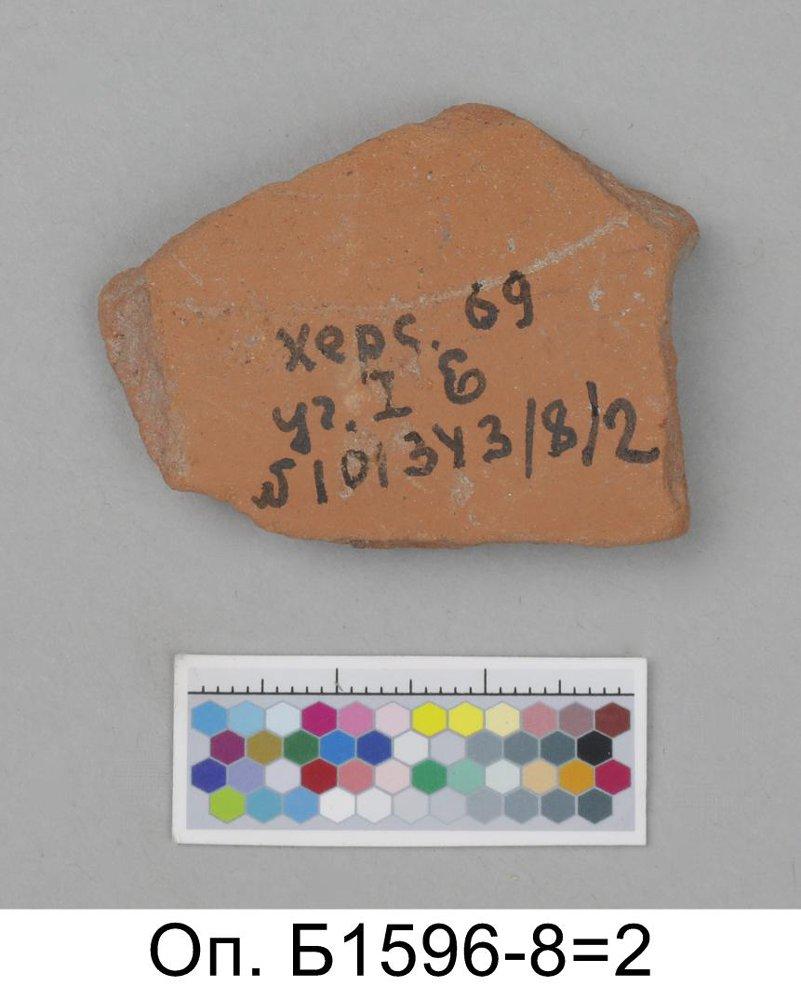 херс. 69
уг. I Б
№ 101343/8/2
Оп. Б1596-8=2